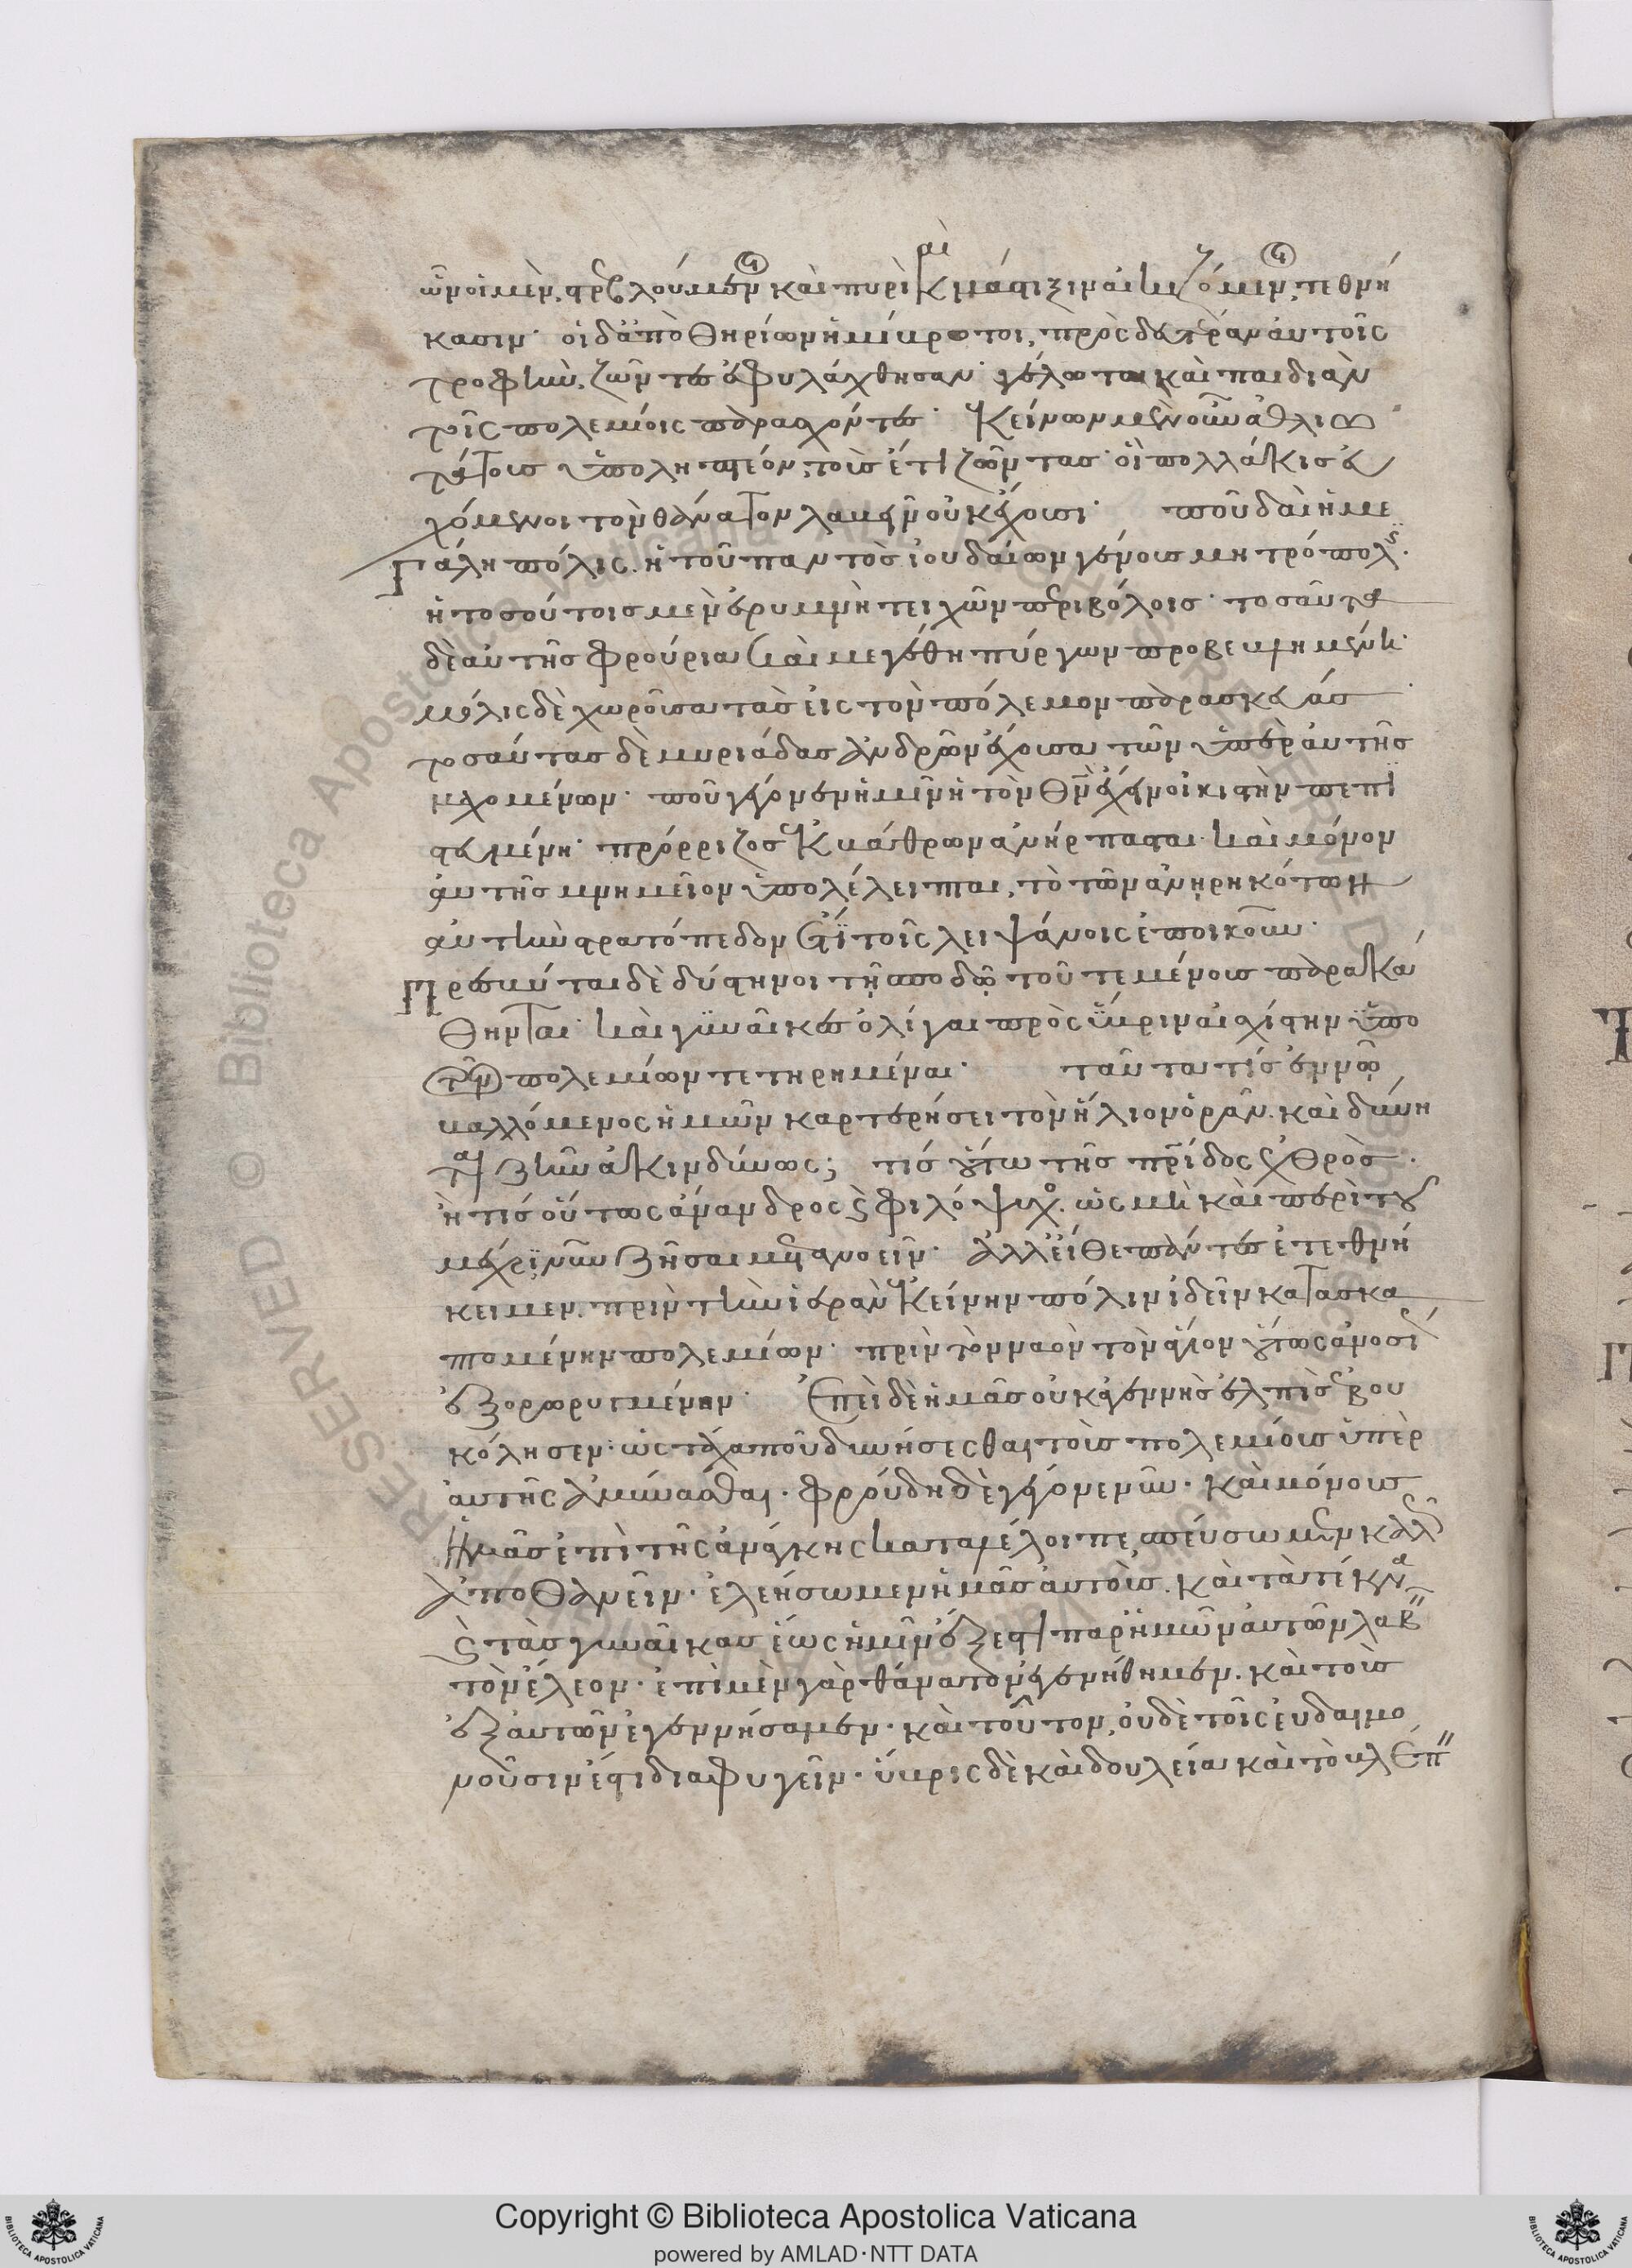 ὧν οἱ μὲν στρεβλούμενοι καὶ πυρὶ καὶ μάστιξιν αἰκιζόμενοι τεθνή
κασιν· οἱ δ' ἀπὸ θηρίων ἡμίβρωτοι, πρὸς δευτέραν αὐτοῖς
τροφὴν, ζῶντες ἐφυλάχθησαν· γέλωτα καὶ παιδιὰν
τοῖς πολεμίοις παρασχόντες· Κείνων μὲν οὖν ἀθλιω
τάτους ὑποληπτέον, τοὺς ἔτι ζῶντας· οἳ πολλάκις εὐ
χόμενοι τὸν θάνατον λαβεῖν οὐκ ἔχουσι· ποῦ δαὶ ἡ με
γάλη πόλις· ἡ τοῦ παντὸς ἰουδαίων γένους μητρόπολις·
ἡ τοσούτοις μὲν ἐρυμνὴ τειχῶν περιβόλοις· τοσαῦτα
δὲ αὐτῆς φρούρια καὶ μεγέθη πύργων προβεβλημένη·
μόλις δὲ χωροῦσα τὰς εἰς τὸν πόλεμον παρασκευάς·
τοσαύτας δὲ μυριάδας ἀνδρῶν ἔχουσα τῶν ὑπὲρ αὐτῆς
μαχομένων· ποῦ γέγονεν ἡμῖν ἡ τὸν θεὸν ἔχειν οἰκιστὴν πεπι
στευμένη· πρόρριζος ἐκ βάθρων ἀνήρπασται· καὶ μόνον
αὐτῆς μνημεῖον ὑπολέλειπται, τὸ τῶν ἀνῃρηκότων
αὐτὴν στρατόπεδον ἔτι τοῖς λειψάνοις ἐποικοῦν·
Πρεσβῦται δὲ δύστηνοι τῇ σποδῷ τοῦ τεμένους παρακά
θηνται· καὶ γυναῖκες ὀλίγαι πρὸς ὕβριν αἰσχίστην ὑπὸ
τῶν πολεμίων τετηρημέναι· ταῦτα τίς ἐν νῷ
βαλλόμενος ἡμῶν καρτερήσει τὸν ἥλιον ὁρᾶν· καὶ δύνη
ται ζῆν ἀκινδύνως; τίς οὕτω τῆς πατρίδος ἐχθρὸς·
ἢ τίς οὕτως ἄνανδρος καὶ φιλόψυχος· ὡς μὴ καὶ περὶ τοῦ
μέχρι νῦν ζῆσαι μετανοεῖν· Ἀλλ' εἴθε πάντες ἐτεθνή
κειμεν· πρὶν τὴν ἱερὰν ἐκείνην πόλιν ἰδεῖν κατασκα
πτομένην πολεμίων· πρὶν τὸν ναὸν τὸν ἅγιον οὕτως ἀνοσίως
ἐξορωρυγμένον· Ἐπεὶ δὲ ἡμᾶς οὐκ ἀγεννὴς ἐλπὶς ἐβου
κόλησεν· ὡς τάχα που δυνήσεσθαι τοὺς πολεμίους ὑπὲρ
αὐτῆς ἀμύνασθαι· φρούδη δὲ γέγονε νῦν· καὶ μόνους
ἡμᾶς ἐπὶ τῆς ἀνάγκης καταλέλοιπε, σπεύσωμεν καλῶς
ἀποθανεῖν· ἐλεήσωμεν ἡμᾶς αὐτοὺς· καὶ τὰ τέκνα
καὶ τὰς γυναῖκας ἕως ἡμῖν ἔξεστι παρ' ἡμῶν αὐτῶν λαβεῖν
τὸν ἔλεον· ἐπὶ μὲν γὰρ θάνατον ἐγεννήθημεν· καὶ τοὺς
ἐξ αὐτῶν ἐγεννήσαμεν· καὶ τοῦτον, οὐδὲ τοῖς εὐδαιμο
νοῦσιν ἔστι διαφυγεῖν· ὕβρις δὲ καὶ δουλεία καὶ τὸ βλέπειν